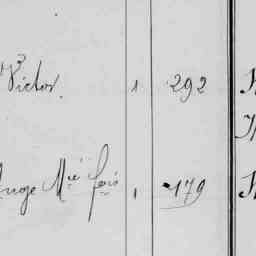 Victor. 1 292
Ange Mie fois 1 179